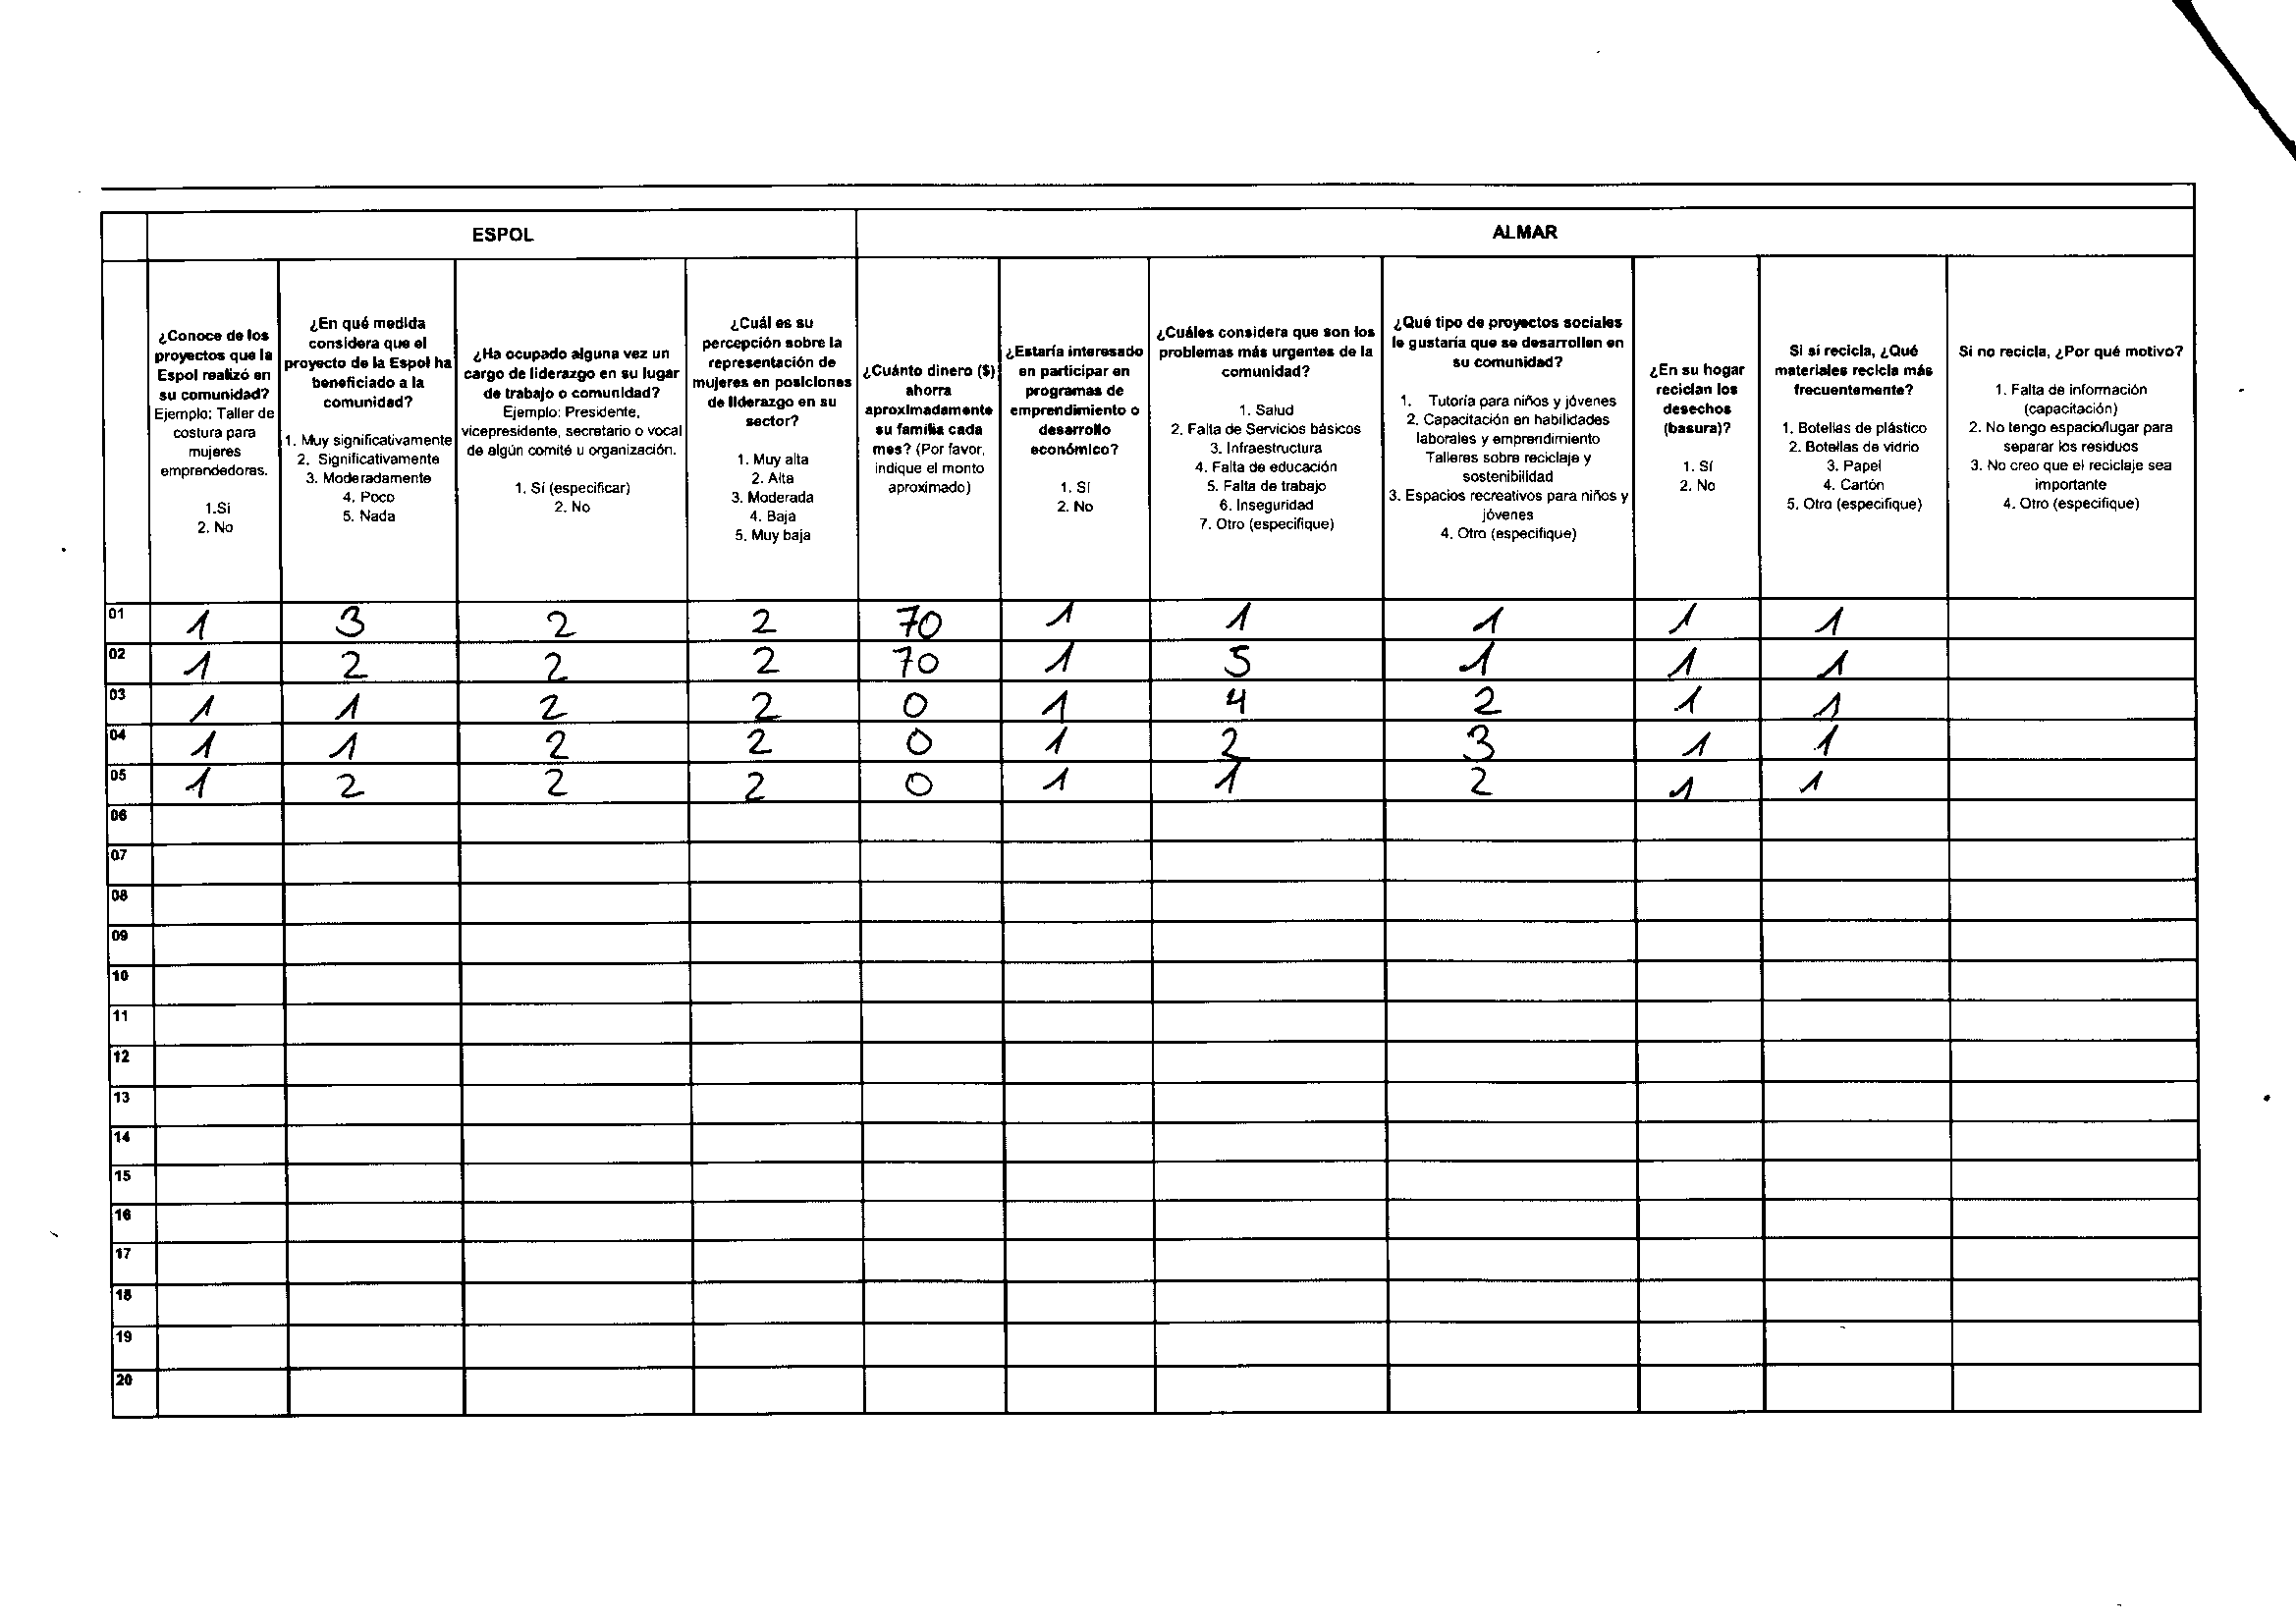 ESPOL
ALMAR
¿Conoce de los
proyectos que la
Espol realizó en
su comunidad?
Ejemplo: Taller de
costura para
mujeres
emprendedoras.
1.Si
2. No
¿En qué medida
considera que el
proyecto de la Espol ha
beneficiado a la
comunidad?
1. Muy significativamente
2. Significativamente
3. Moderadamente
4. Poco
5. Nada
¿Ha ocupado alguna vez un
cargo de liderazgo en su lugar
de trabajo o comunidad?
Ejemplo: Presidente,
vicepresidente, secretario o vocal
de algún comité u organización.
1. Sí (especificar)
2. No
¿Cuál es su
percepción sobre la
representación de
mujeres en posiciones
de liderazgo en su
sector?
1. Muy alta
2. Alta
3. Moderada
4. Baja
5. Muy baja
¿Cuánto dinero ($)
ahorra
aproximadamente
su familia cada
mes? (Por favor,
indique el monto
aproximado)
¿Estaría interesado
en participar en
programas de
emprendimiento o
desarrollo
económico?
1. Sí
2. No
¿Cuáles considera que son los
problemas más urgentes de la
comunidad?
1. Salud
2. Falta de Servicios básicos
3. Infraestructura
4. Falta de educación
5. Falta de trabajo
6. Inseguridad
7. Otro (especifique)
¿Qué tipo de proyectos sociales
le gustaría que se desarrollen en
su comunidad?
1. Tutoría para niños y jóvenes
2. Capacitación en habilidades
laborales y emprendimiento
Talleres sobre reciclaje y
sostenibilidad
3. Espacios recreativos para niños y
jóvenes
4. Otro (especifique)
¿En su hogar
reciclan los
desechos
(basura)?
1. Sí
2. No
Si sí recicla, ¿Qué
materiales recicla más
frecuentemente?
1. Botellas de plástico
2. Botellas de vidrio
3. Papel
4. Cartón
5. Otro (especifique)
Si no recicla, ¿Por qué motivo?
1. Falta de información
(capacitación)
2. No tengo espacio/lugar para
separar los residuos
3. No creo que el reciclaje sea
importante
4. Otro (especifique)
01 1 3 2 2 70 1 1 1 1 1
02 1 2 2 2 70 1 5 1 1 1
03 1 1 2 2 0 1 4 2 1 1
04 1 1 2 2 0 1 2 3 1 1
05 1 2 2 2 0 1 1 2 1 1
06
07
08
09
10
11
12
13
14
15
16
17
18
19
20